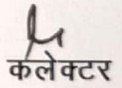 कलेक्टर